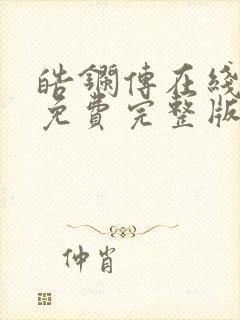 皓鑭傳在綫
免費完整版
仲肖